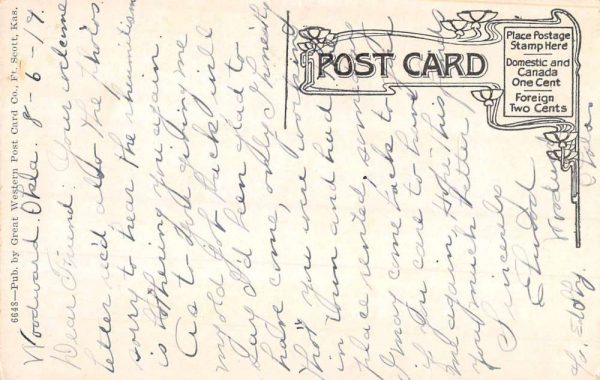 6648—Pub. by Great Western Post Card Co., Ft. Scott, Kas.
POST CARD
Place Postage
Stamp Here
Domestic and
Canada
One Cent
Foreign
Two Cents
Woodward, Okla. 8-6-19.
Dear Friend: Your welcome
letter rec'd also the photos.
sorry to hear the rheumatism
is bothering you again.
As to Bob giving me
my old job back, will
say I'd been glad to
have come, only I
tho't you were
in town and had
place rented, some
I may come back to
if you care to have
me again, hope this finds
you much better
Sincerely
Woodward
Okla